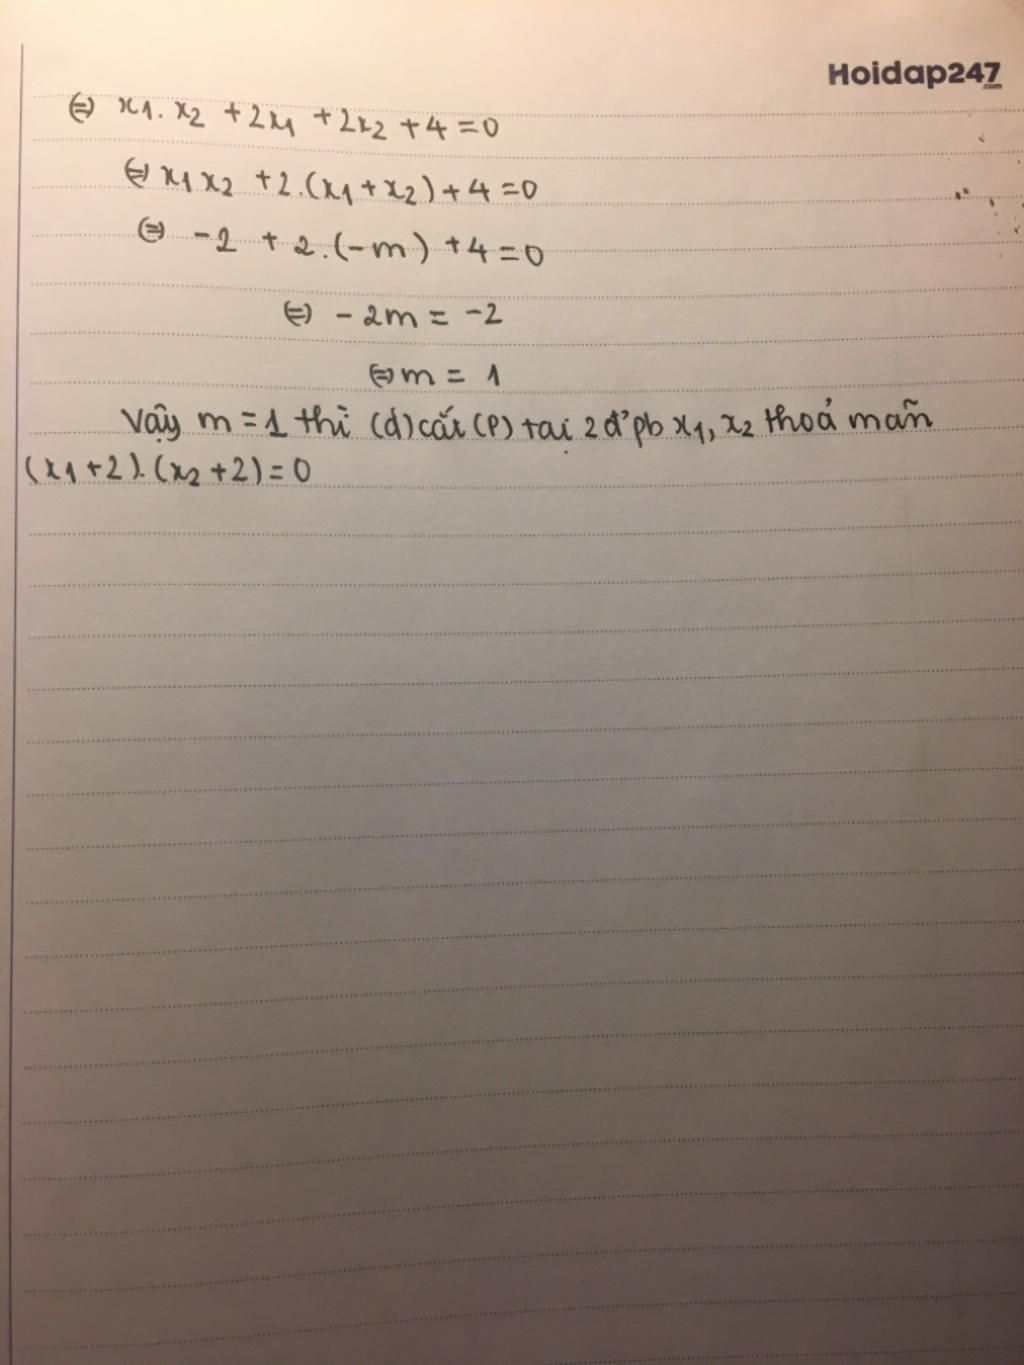 Hoidap247
.com
⇔ x1. x2 + 2x1 + 2x2 + 4 = 0
⇔ x1 x2 + 2.(x1 + x2) + 4 = 0
⇔ -2 + 2.(-m) + 4 = 0
⇔ - 2m = -2
⇔ m = 1
Vậy m = 1 thì (d) cắt (P) tại 2 đ' pb x1, x2 thoả mãn
(x1 + 2). (x2 + 2) = 0